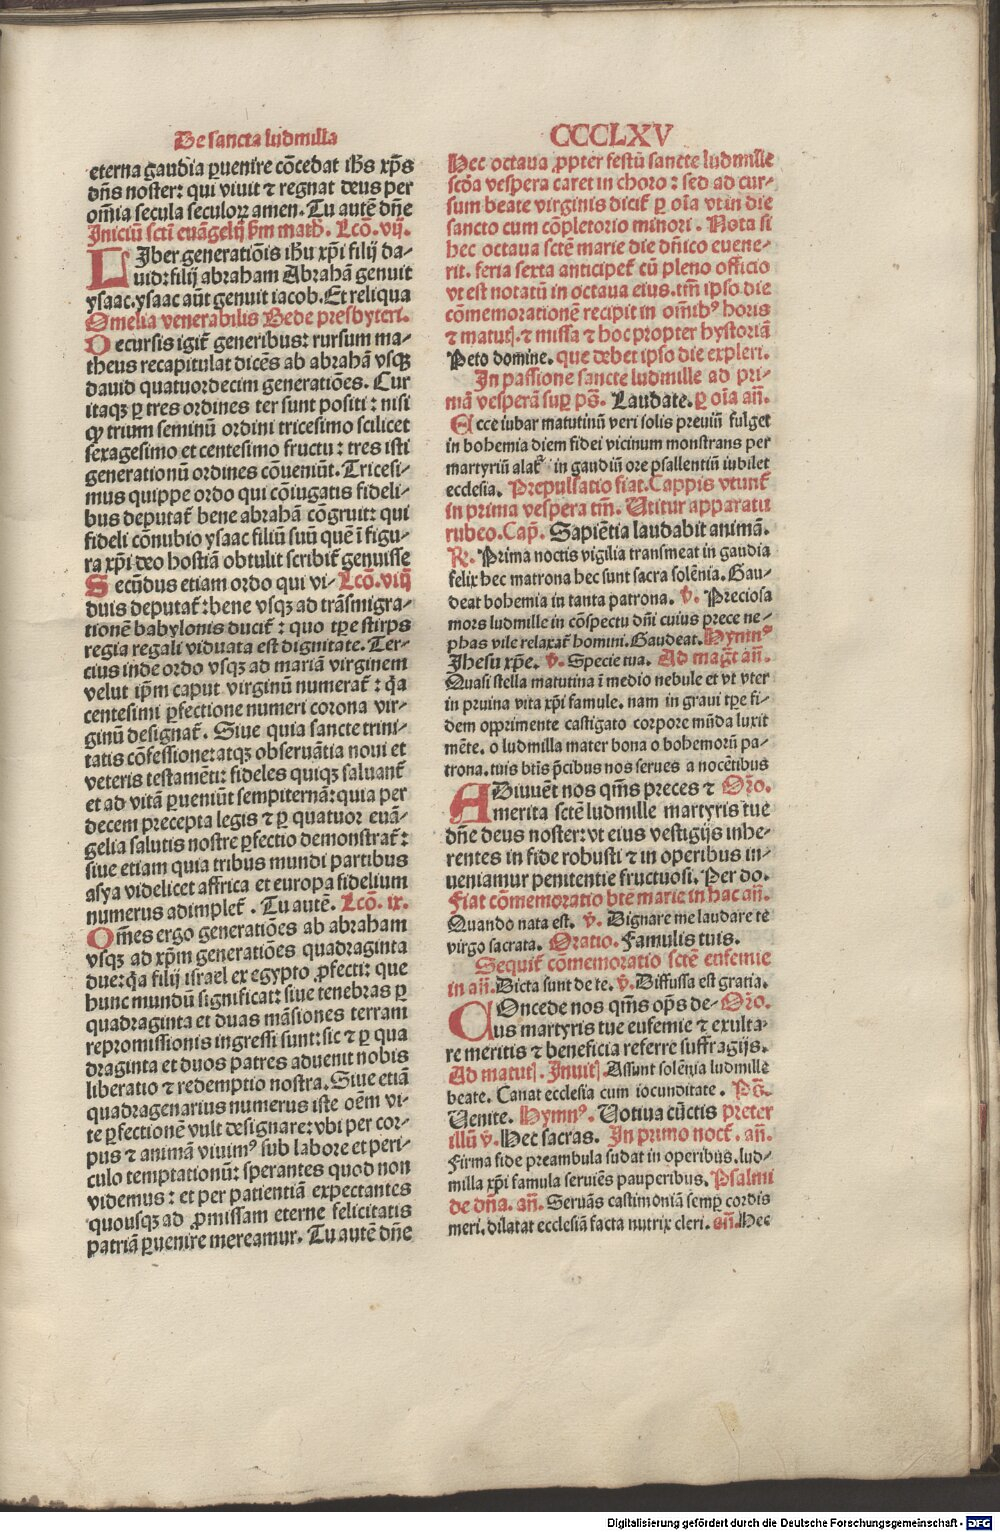 De sancta ludmilla
CCCLXV
eterna gaudia ꝑuenire cōcedat ihs xp̄s
dn̄s noster: qui viuit ⁊ regnat deus per
om̄ia secula seculoꝝ amen. Tu autē dn̄e
Iniciū scti euāgelij ẜm math. Lcō. vij.
LIber generatiōis ihu xp̄i filij da⸗
uid: filij abraham Abrahā genuit
ysaac. ysaac aūt genuit iacob. Et reliqua
Omelia venerabilis Bede presbyteri.
Decursis igit̄ generibus: rursum ma⸗
theus recapitulat dicēs ab abrahā vsqꝫ
dauid quatuordecim generatiōes. Cur
itaqꝫ ꝑ tres ordines ter sunt positi: nisi
ꝙ trium seminū ordini tricesimo scilicet
sexagesimo et centesimo fructu: tres isti
generationū ordines cōueniūt. Tricesi⸗
mus quippe ordo qui cōiugatis fideli⸗
bus deputat̄ bene abrahā cōgruit: qui
fideli cōnubio ysaac filiū suū quē ī figu⸗
ra xp̄i deo hostiā obtulit scribit̄ genuisse
Secūdus etiam ordo qui vi⸗ Lcō. viij
duis deputat̄: bene vsqꝫ ad trāsmigra⸗
tionē babylonis ducit̄: quo tp̄e stirps
regia regali viduata est dignitate. Ter⸗
cius inde ordo vsqꝫ ad mariā virginem
velut ip̄m caput virginū numerat̄: q̄a
centesimi ꝑfectione numeri corona vir⸗
ginū designat̄. Siue quia sancte trini⸗
tatis cōfessione: atqꝫ obseruātia noui et
veteris testamēti: fideles quiqꝫ saluant̄
et ad vitā ꝑueniūt sempiternā: quia per
decem precepta legis ⁊ ꝑ quatuor euā⸗
gelia salutis nostre ꝑfectio demonstrat̄:
siue etiam quia tribus mundi partibus
asya videlicet affrica et europa fidelium
numerus adimplet̄. Tu autē. Lcō. ix.
Om̄es ergo generatiōes ab abraham
vsqꝫ ad xp̄m generatiōes quadraginta
due: q̄a filij israel ex egypto ꝓfecti: que
hunc mundū significat: siue tenebras ꝑ
quadraginta et duas māsiones terram
repromissionis ingressi sunt: sic ⁊ ꝑ qua
draginta et duos patres aduenit nobis
liberatio ⁊ redemptio nostra. Siue etiā
quadragenarius numerus iste oēm vi⸗
te ꝑfectionē vult designare: vbi per cor⸗
pus ⁊ animā viuimꝰ sub labore et peri⸗
culo temptationū: sperantes quod non
videmus: et per patientiā expectantes
quousqꝫ ad ꝓmissam eterne felicitatis
patriā ꝑuenire mereamur. Tu autē dn̄e
Hec octaua ꝓpter festū sancte ludmille
scd̄a vespera caret in choro: sed ad cur⸗
sum beate virginis dicit̄ ꝑ oīa vt in die
sancto cum cōpletorio minori. Nota si
hec octaua sctē marie die dn̄ico euene⸗
rit. feria sexta anticipet̄ cū pleno officio
vt est notatū in octaua eius. tm̄ ipso die
cōmemorationē recipit in om̄ibꝰ horis
⁊ matuṭ. ⁊ missa ⁊ hoc propter hystoriā
Peto domine. que debet ipso die expleri.
In passione sancte ludmille ad pri⸗
mā vesperā suꝑ pṡ. Laudate. ꝑ oīa an̄.
Ecce iubar matutinū veri solis preuiū fulget
in bohemia diem fidei vicinum monstrans per
martyriū alat᷑ in gaudiū ore psallentiū iubilet
ecclesia. Prepulsatio fiat. Cappis vtunt̄
in prima vespera tm̄. Vtitur apparatu
rubeo. Cap̄. Sapiētia laudabit animā.
R̷. Prima noctis vigilia transmeat in gaudia
felix hec matrona hec sunt sacra solēnia. Gau⸗
deat bohemia in tanta patrona. v̄. Preciosa
mors ludmille in cōspectu dn̄i cuius prece ne⸗
phas vile relaxat̄ homini. Gaudeat. Hymnꝰ
Jhesu xp̄e. v̄. Specie tua. Ad mag̃t an̄.
Quasi stella matutina ī medio nebule et vt vter
in pruina vita xp̄i famule. nam in graui tp̄e fi⸗
dem opprimente castigato corpore mūda luxit
mēte. o ludmilla mater bona o bohemorū pa⸗
trona. tuis btīs p̄cibus nos serues a nocētibus
ADiuuēt nos qm̄s preces ⁊ Or̄o.
merita sctē ludmille martyris tue
dn̄e deus noster: vt eius vestigijs inhe⸗
rentes in fide robusti ⁊ in operibus in⸗
ueniamur penitentie fructuosi. Per do.
Fiat cōmemoratio btē marie in hac an̄.
Quando nata est. v̄. Dignare me laudare te
virgo sacrata. Oratio. Famulis tuis.
Sequit̄ cōmemoratio sctē eufemie
in an̄. Dicta sunt de te. v̄. Diffussa est gratia.
COncede nos qm̄s op̄s de⸗ Or̄o.
us martyris tue eufemie ⁊ exulta⸗
re meritis ⁊ beneficia referre suffragijs.
Ad matuṭ. Inuiṭ. Assunt solēnia ludmille
beate. Canat ecclesia cum iocunditate. Pṡ.
Uenite. Hymnꝰ. Uotiua cūctis preter
illū v̄. Hec sacras. In primo noct̄. an̄.
Firma fide preambula sudat in operibus. lud⸗
milla xp̄i famula seruiēs pauperibus. Psalmi
de dn̄a. an̄. Seruās castimoniā semꝑ cordis
meri. dilatat ecclesiā facta nutrix cleri. an̄. Hec
Digitalisierung gefördert durch die Deutsche Forschungsgemeinschaft - DFG